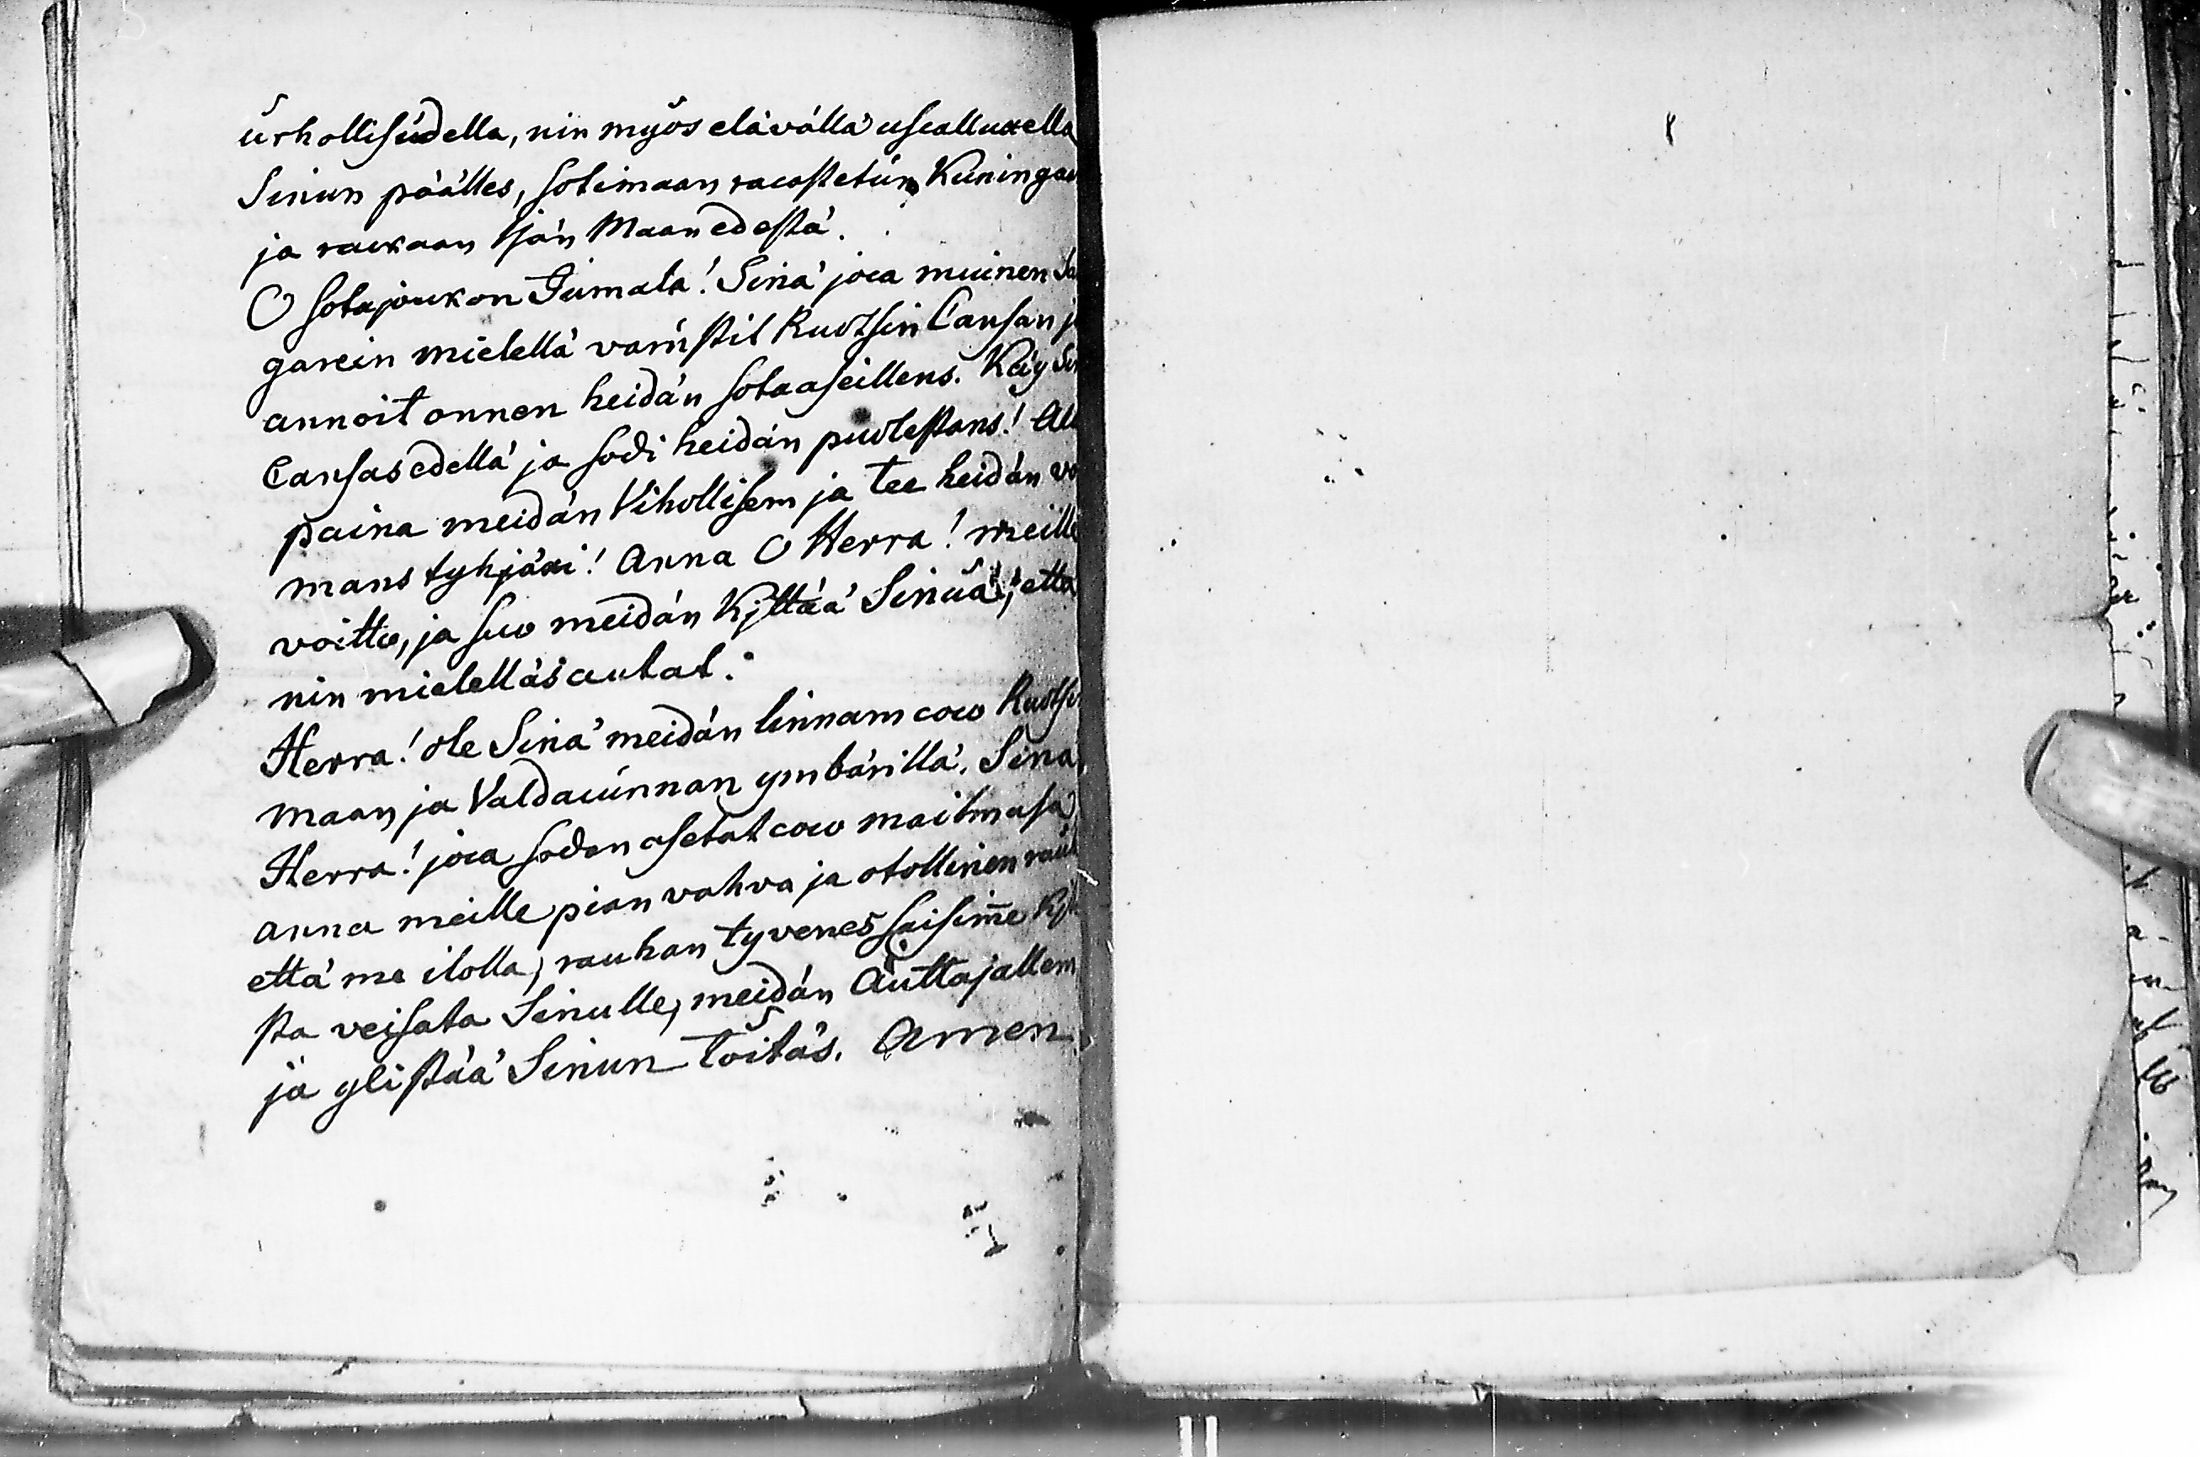 ürhollisüdella, nin myös elävällä uscalluxella
Sinun päälles, sotimaan racastetun Kuningan
ja rackaan Isän Maan edestä.
O sotajoukon Jumala! Sinä joca muinen Sa
garein mielellä varustit Ruotsin Cansan ja
annoit onnen heidän sotaaseillens. Käy Sin
Cansas edellä ja sodi heidän puolestans! All
paina meidän Vihollisem ja tee heidän voi
mans tyhjäxi! Anna O Herra! meille
voitto, ja suo meidän Kijttää Sinua, että
nin mielelläs autat.
Herra! ole Sinä meidän linnam coco Ruotsin
maan ja Valdacunnan ymbärillä. Sinä
Herra! joca sodan asetat coco mailmasa
anna meille pian vahva ja otollinen rauh
että me ilolla, rauhan tyvenes saisim̅e Kijt
sta veisata Sinulle, meidän Auttajallem
ja ylistää Sinun töitäs. Amen.